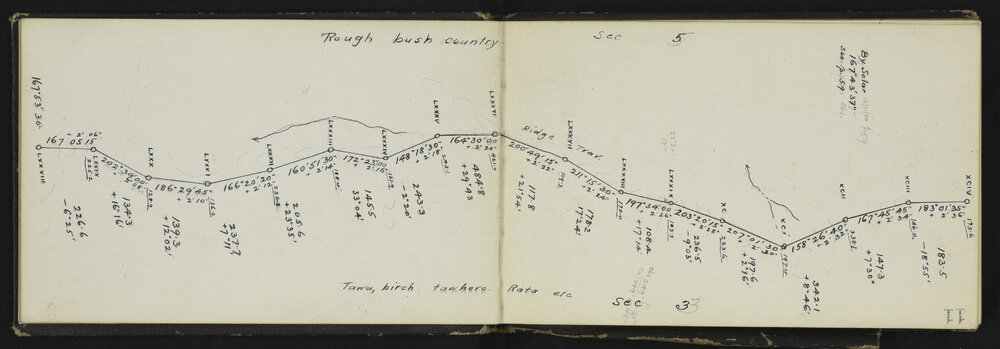 Rough bush country
Sec 5
By Solar
167° 43' 37"
See p. 59
Ridge Trav.
167° 53' 30"
LXXVIII
167° 05' 15
+ 2' 06"
LXXIX
226.6
- 6° 25'
LXXX
134.3
+ 16° 16'
186° 29' 45"
+ 2' 10"
LXXXI
139.3
+ 12° 02'
166° 20' 20"
+ 2' 12"
LXXXII
237.7
+ 7° 17'
160° 51' 30"
+ 2' 14"
LXXXIII
205.6
+ 23° 35'
172° 23' 00"
+ 2' 16"
LXXXIV
145.5
33° 04'
148° 18' 30"
+ 2' 18"
LXXXV
243.3
- 2° 20'
164° 30' 00"
LXXXVI
484.8
+ 29° 43
200° 49' 15"
+ 2' 22"
LXXXVII
117.8
+ 21° 54'
211° 15' 30"
LXXXVIII
178.2
17° 24'
197° 34' 00
+ 2' 26"
LXXXIX
108.4
+ 17° 14'
203° 20' 15"
XC
236.5
9° 03'
207° 01' 30"
XCI
197.6
+ 2° 16'
158° 26' 40"
XCII
342.1
+ 8° 46'
167° 45' 45"
+ 2' 34"
XCIII
147.3
+ 7° 30"
183° 01' 35"
+ 2' 36"
XCIV
183.5
- 18° 55'
Tawa, birch, tawhero Rata etc
Sec 3